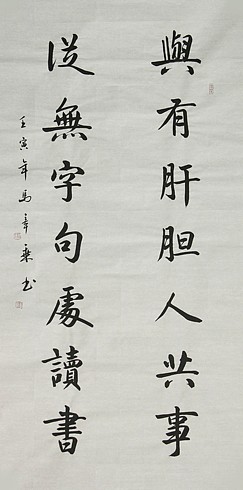 與有肝胆人共事
從無字句處讀書
壬寅年馬章乘书